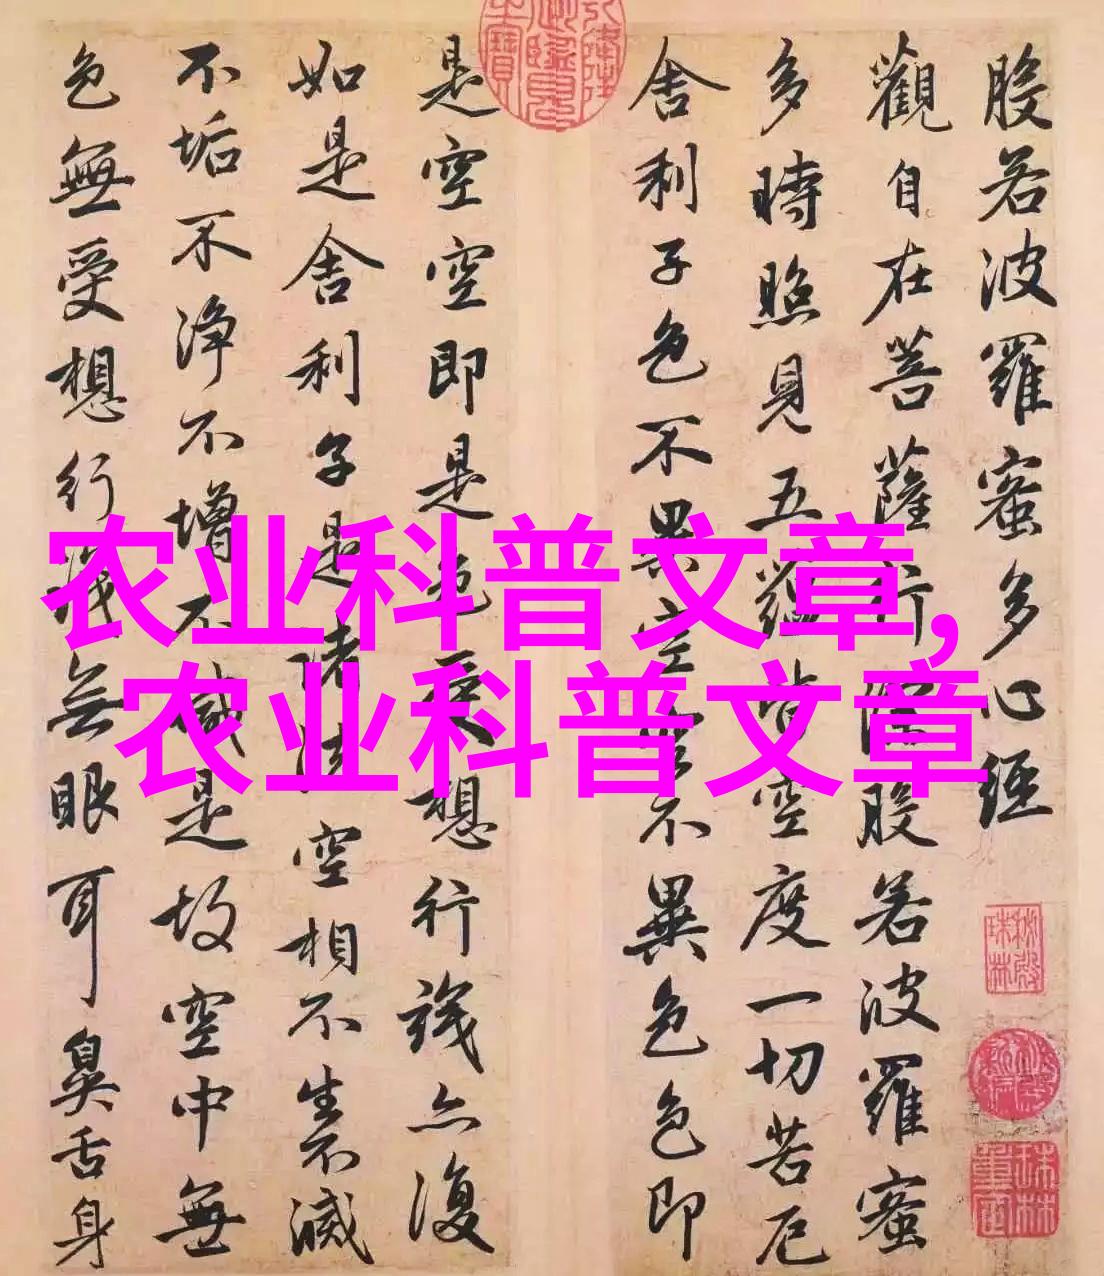 般若波羅蜜多心經
觀自在菩薩行深般若波羅蜜
多時照見五蘊皆空度一切苦厄
舍利子色不異空空不異色色即
是空空即是色受想行識亦復
如是舍利子是諸法空相不生不滅
不垢不净不增不減是故空中無
色無受想行識无眼耳鼻舌身
农业科普文章,
农业科普文章
秘殿珠林